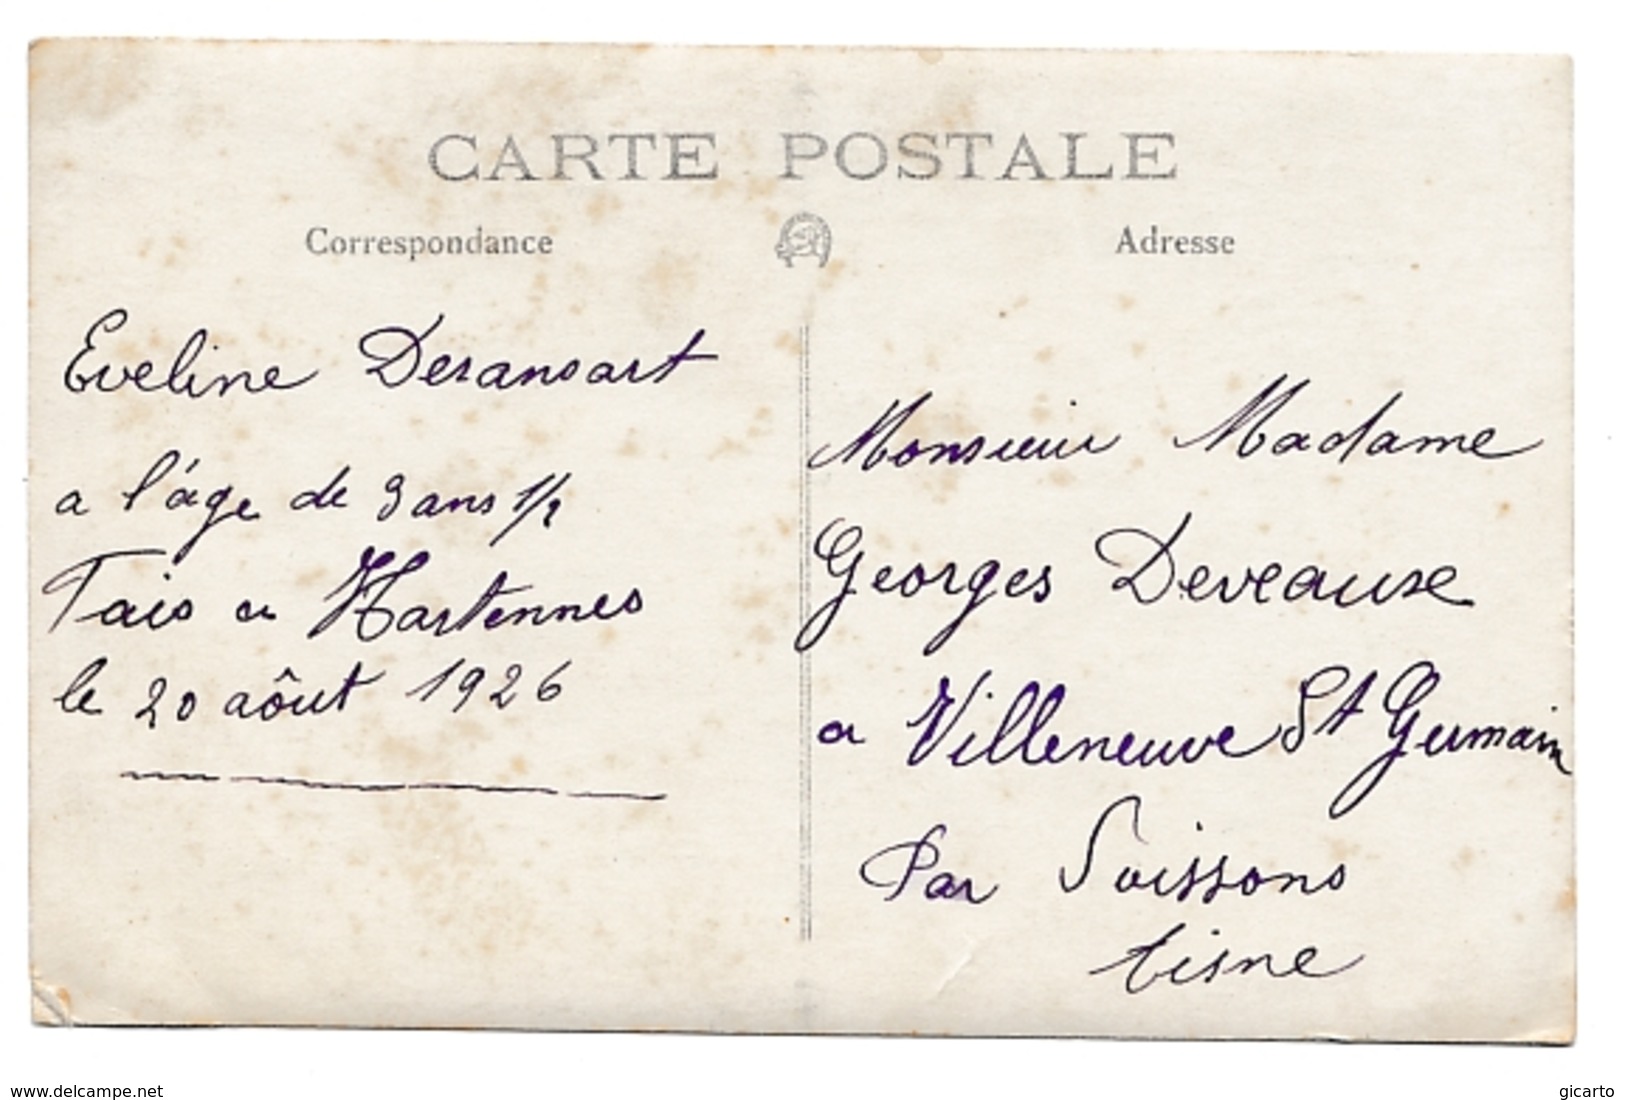 CARTE POSTALE
Correspondance
Adresse
Eveline Deransart
a l'âge de 3 ans 1/2
Tais a Hartennes
le 20 aôut 1926
Monsieur Madame
Georges Deveause
a Villeneuve St Germain
Par Soissons
Aisne
www.delcampe.net
gicarto